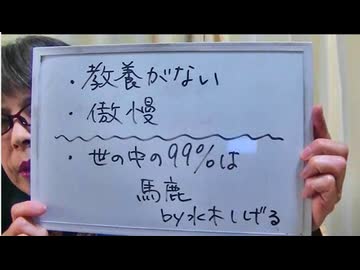 ・教養がない
・傲慢
・世の中の99%は
馬鹿
by水木しげる